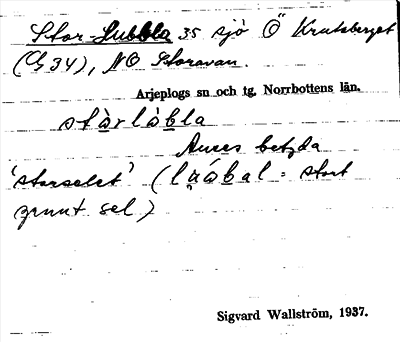 Stor-Lubbla 35 sjö Ö Krutaberget
(G 34), NO Storavan.
Arjeplogs sn och tg, Norrbottens län.
stàrlàbla
Anses betyda
'storselet' (lu̯ȯbal = stort
grunt sel)
Sigvard Wallström, 1937.